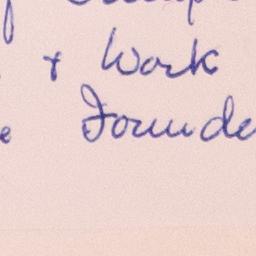 + Work
e Founde